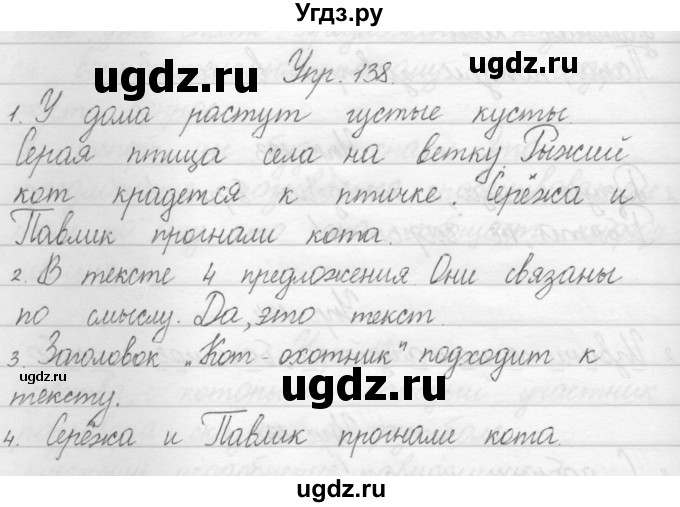 Угдз.ру
ugdz.ru ugdz.ru
Упр. 138.
1. У дома растут густые кусты
Серая птица села на ветку Рыжий
кот крадется к птичке. Серёжа и
Павлик прогнали кота.
2. В тексте 4 предложения Они связаны
по смыслу. Да, это текст.
3. Заголовок „Кот-охотник" подходит к
ugdz.ru ugdz.ru ugdz.ru
тексту.
4. Серёжа и Павлик прогнали кота.
ugdz.ru